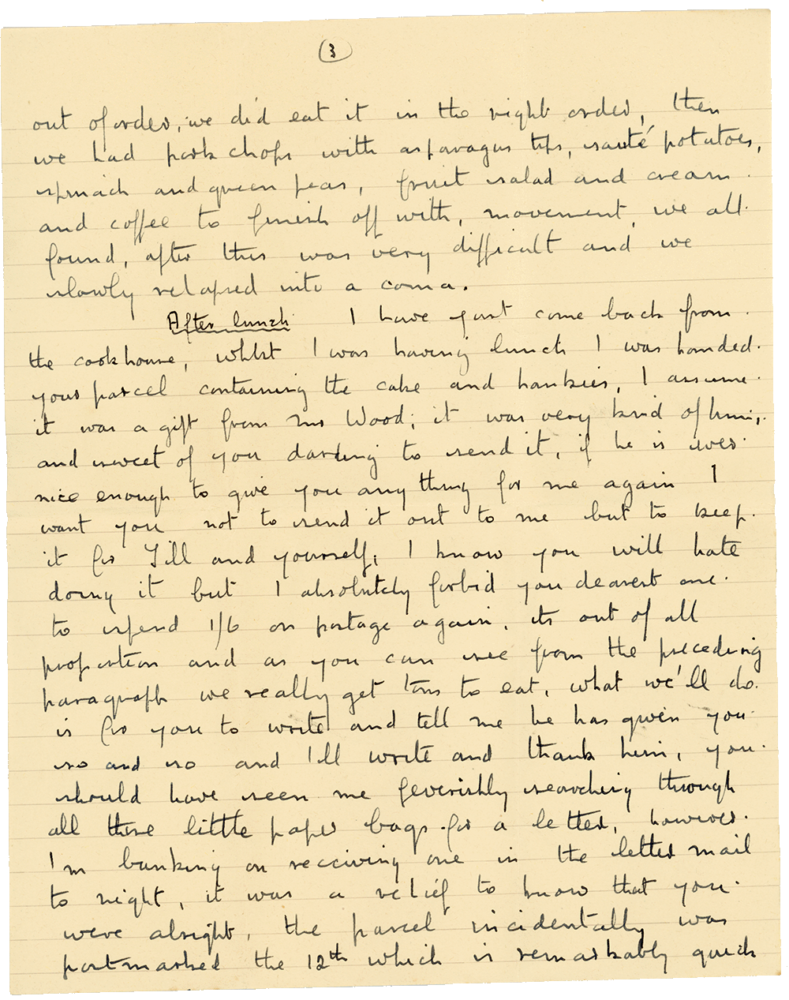 (3)
out of order, we did eat it in the right order, then
we had pork chops with asparagus tips, sauté potatoes,
spinach and green peas, fruit salad and cream
and coffee to finish off with, movement, we all
found, after this was very difficult and we
slowly relapsed into a coma.
After lunch I have just come back from
the cookhouse, whilst I was having lunch I was handed
your parcel containing the cake and hankies, I assume
it was a gift from Mr Wood; it was very kind of him,
and sweet of you darling to send it, if he is ever
nice enough to give you anything for me again I
want you not to send it out to me but to keep
it for Jill and yourself, I know you will hate
doing it but I absolutely forbid you dearest one
to spend 1/6 on postage again, its out of all
proportion and as you can see from the preceding
paragraph we really get tons to eat, what we'll do
is for you to write and tell me he has given you
so and so and I'll write and thank him, you
should have seen me feverishly searching through
all those little paper bags for a letter, however
I'm banking on receiving one in the letter mail
to night, it was a relief to know that you
were alright, the parcel incidentally was
postmarked the 12th which is remarkably quick